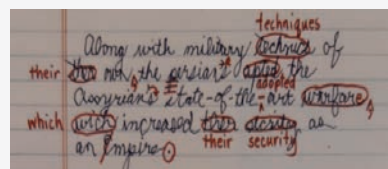 techniques
Along with military technics of
their thir non, the persian's apled the
adopted
Assyrian's state-of-the-art warfare
which wich increased thier as
their security
an Empire.